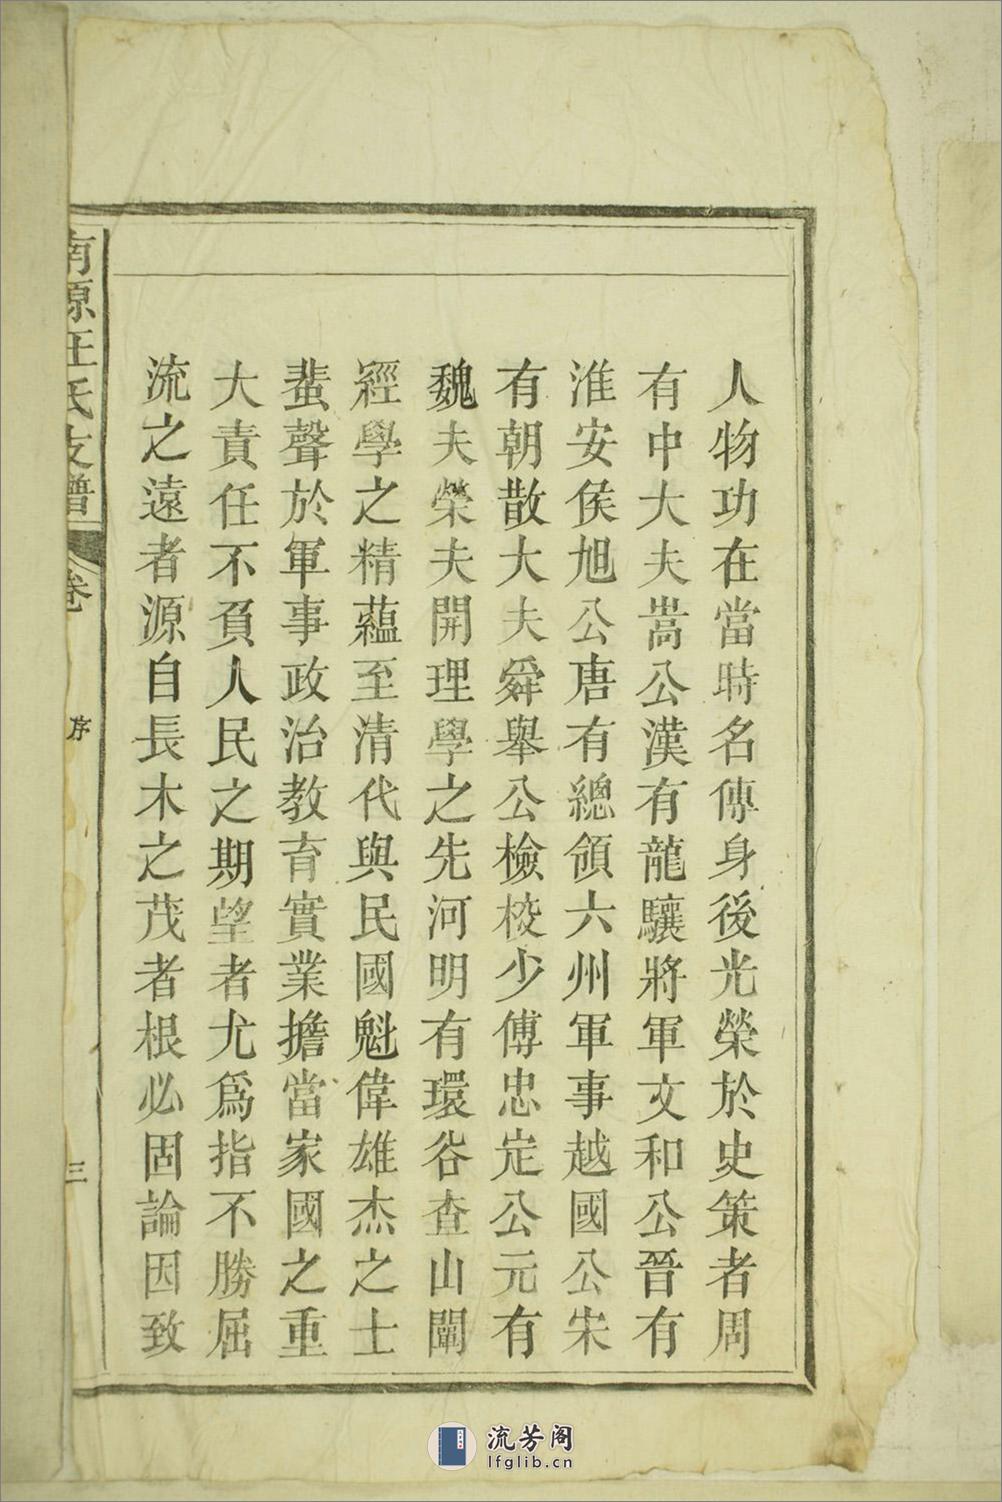 人物功在當時名傳身後光榮於史策者周
有中大夫嵩公漢有龍驤將軍文和公晉有
淮安侯旭公唐有總領六州軍事越國公宋
有朝散大夫舜舉公檢校少傅忠定公元有
魏夫榮夫開理學之先河明有環谷查山闡
經學之精蘊至清代與民國魁偉雄杰之士
蜚聲於軍事政治教育實業擔當家國之重
大責任不負人民之期望者尤爲指不勝屈
流之遠者源自長木之茂者根必固論因致
南源汪氏支譜 卷 序 三
流芳阁
lfglib.cn